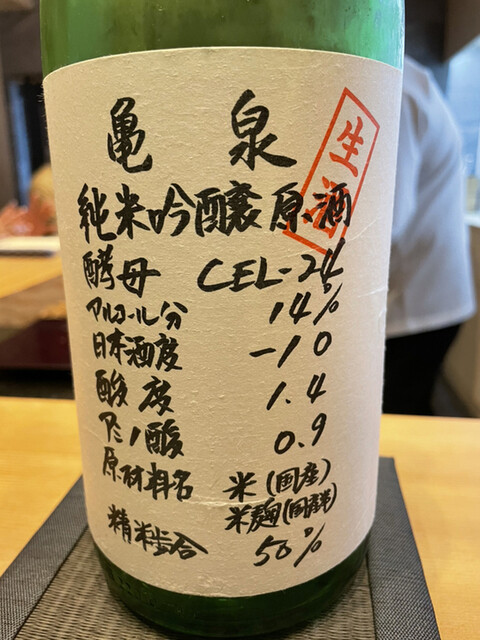 亀泉
生酒
純米吟醸原酒
酵母 CEL-24
アルコール分 14%
日本酒度 -10
酸度 1.4
アミノ酸 0.9
原材料名 米(国産)
米麹(国産)
精米歩合 50%